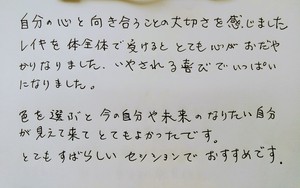 自分の心と向き合うことの大切さを感じました
レイキを体全体で受けるととても心がおだや
かりなりました。いやされる喜びでいっぱい
になりました。
色を選ぶと今の自分や未来のなりたい自分
が見えて来てとてもよかったです。
とてもすばらしいセッションでおすすめです。